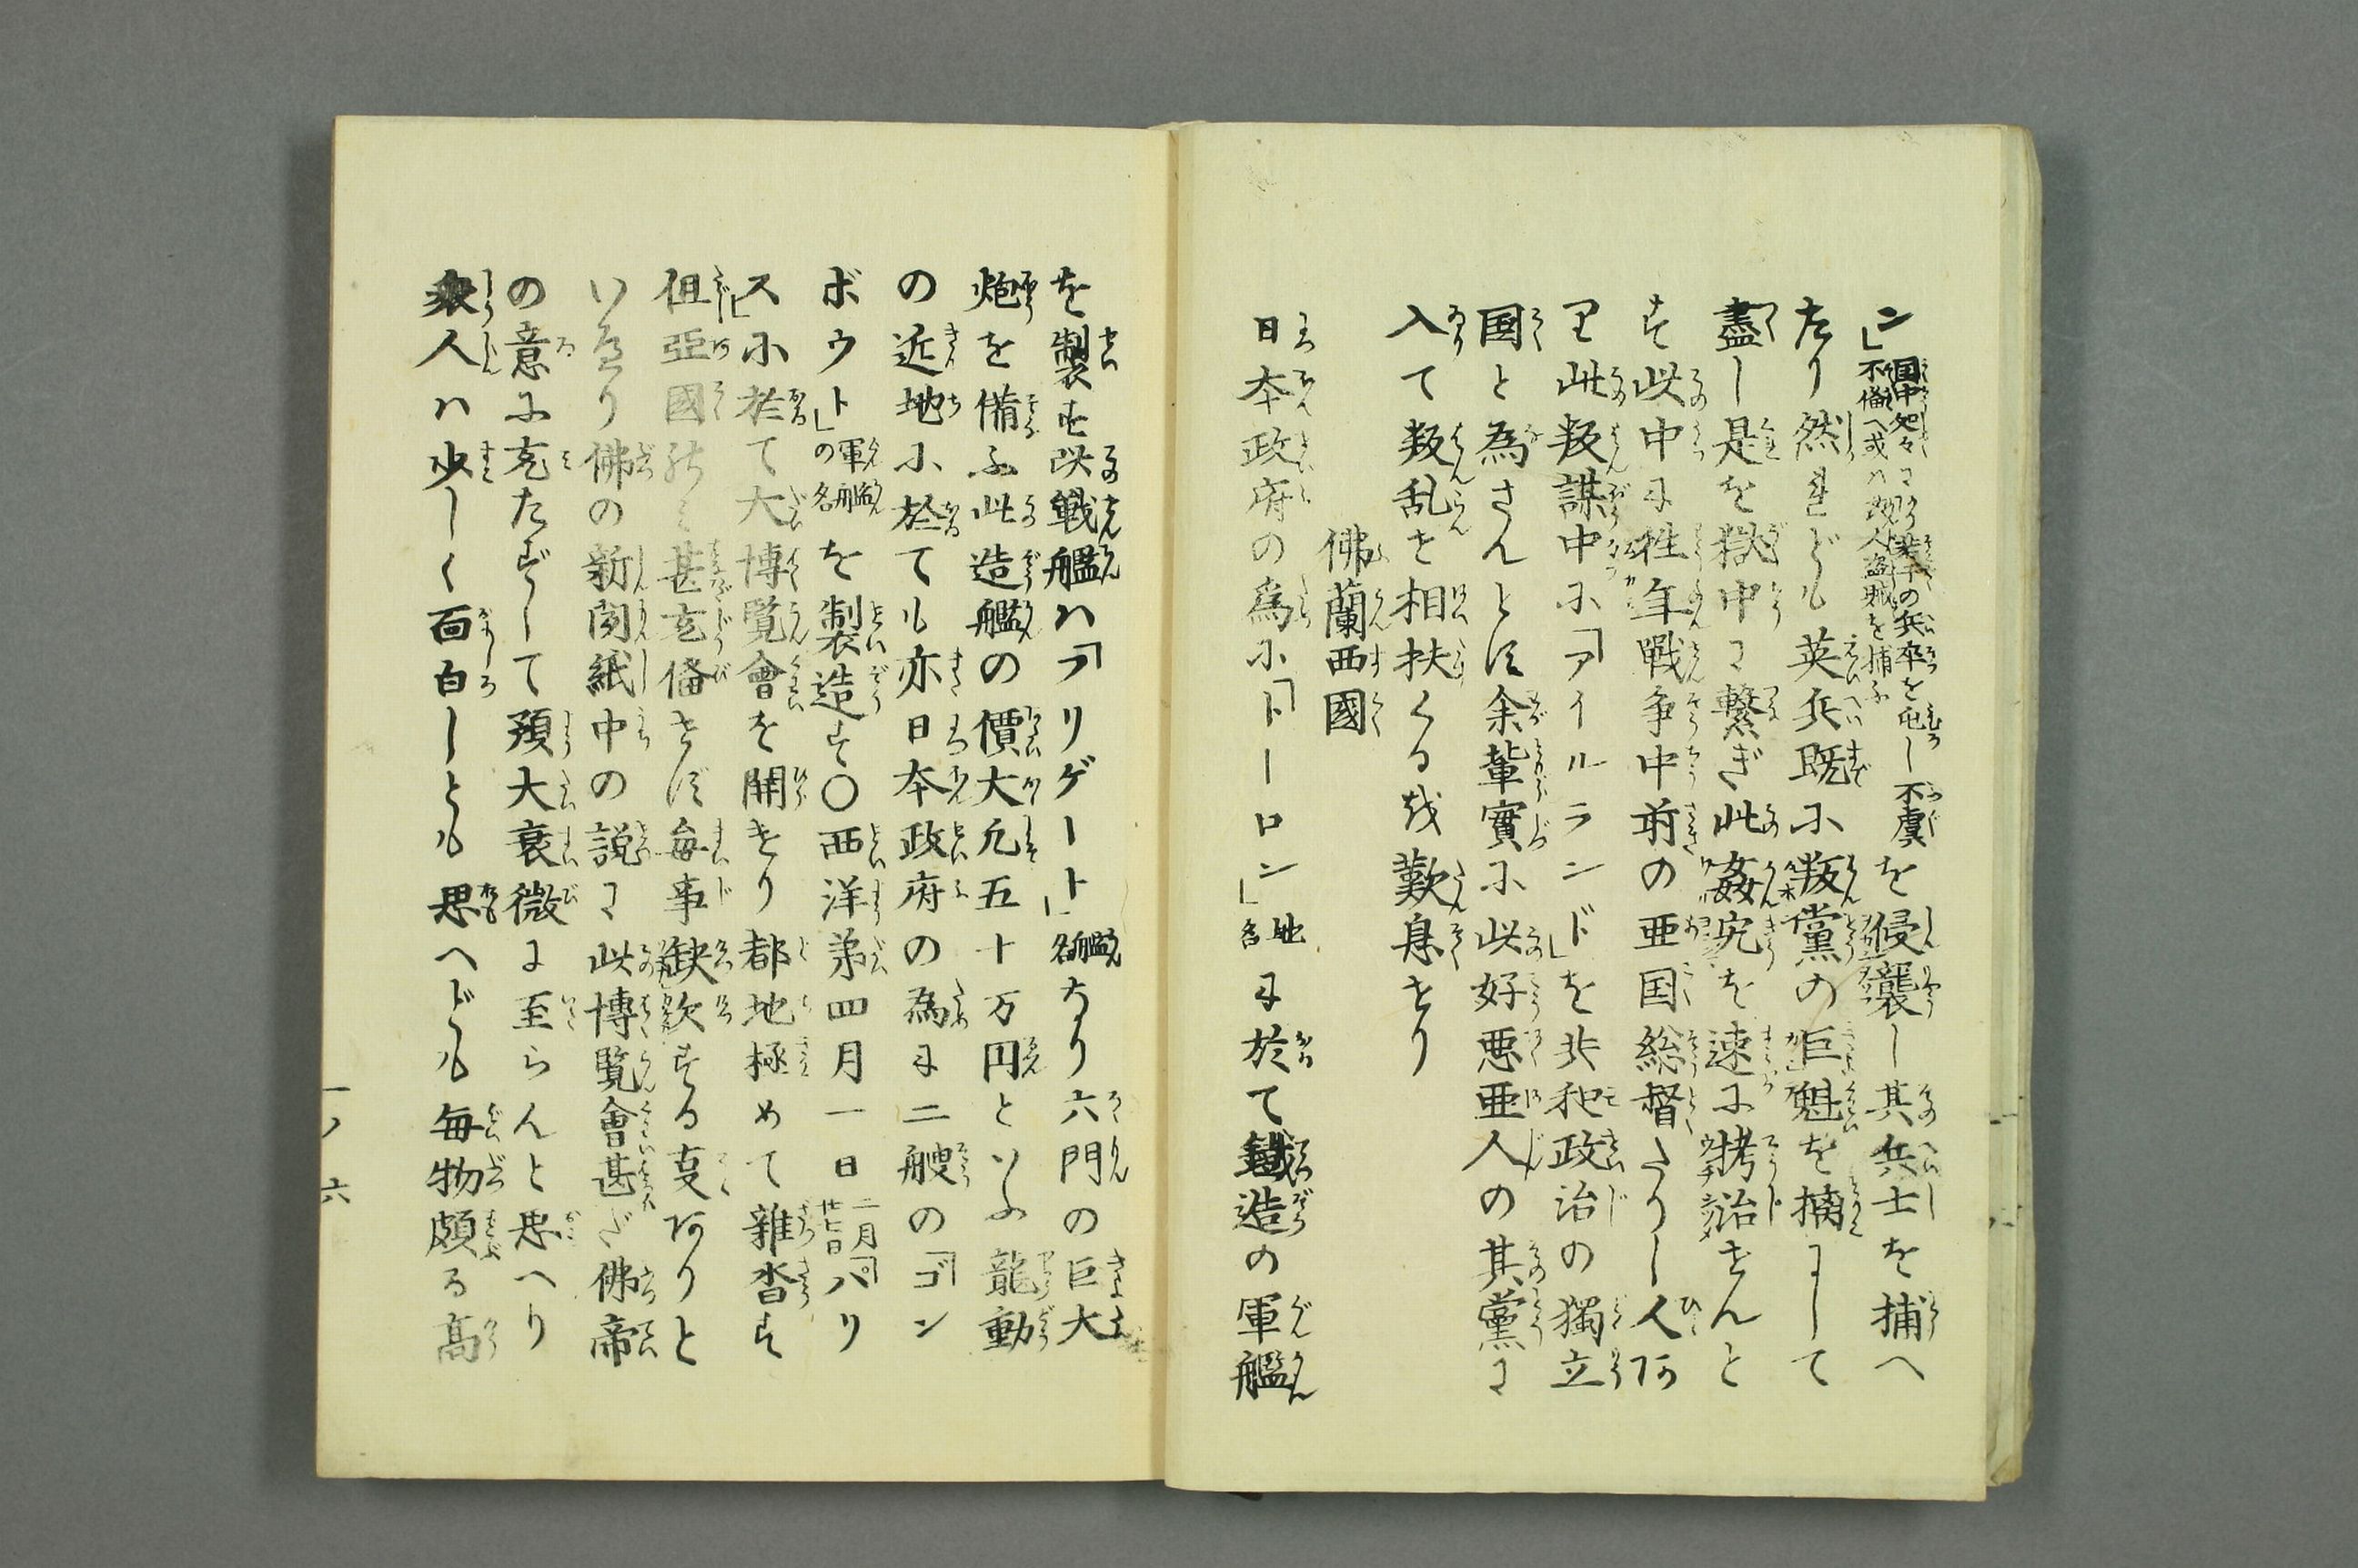 ン」国中処々に若干の兵卒を屯し不虞
不備へ或ハ政人盗賊を捕ふ
を侵襲し其兵士を捕へ
たり然れども英兵既に叛黨の巨魁を擒にして
盡し是を獄中に繋ぎ此姦宄を速に拷治せんと
す此中に徃年戰争中前の亜国総督たりし人あ
り此叛謀中に「アイルランド」を共和政治の獨立
国と為さんとす余輩實に此好悪亜人の其黨に
入て叛乱を相扶くるを歎息せり
佛蘭西國
日本政府の為に「トーロン」地名に於て鐵造の軍艦
を製す此戰艦ハ「フリゲート」艦名なり六門の巨大
炮を備ふ此造艦の價大凢五十万円といふ龍動
の近地に於ても亦日本政府の為に二艘の「ゴン
ボウト」の軍艦名を製造す〇西洋第四月一日二月廿七日「パリ
ス」に於て大博覧會を開きり都地極めて雜沓す
但亞國許り甚玄備せず毎事缺欠する事ありと
いへり佛の新聞紙中の説に此博覧會甚だ佛帝
の意に充たずして預大衰微に至らんと思へり
衆人ハ少しく面白しとも思へども毎物頗る高
一ノ六